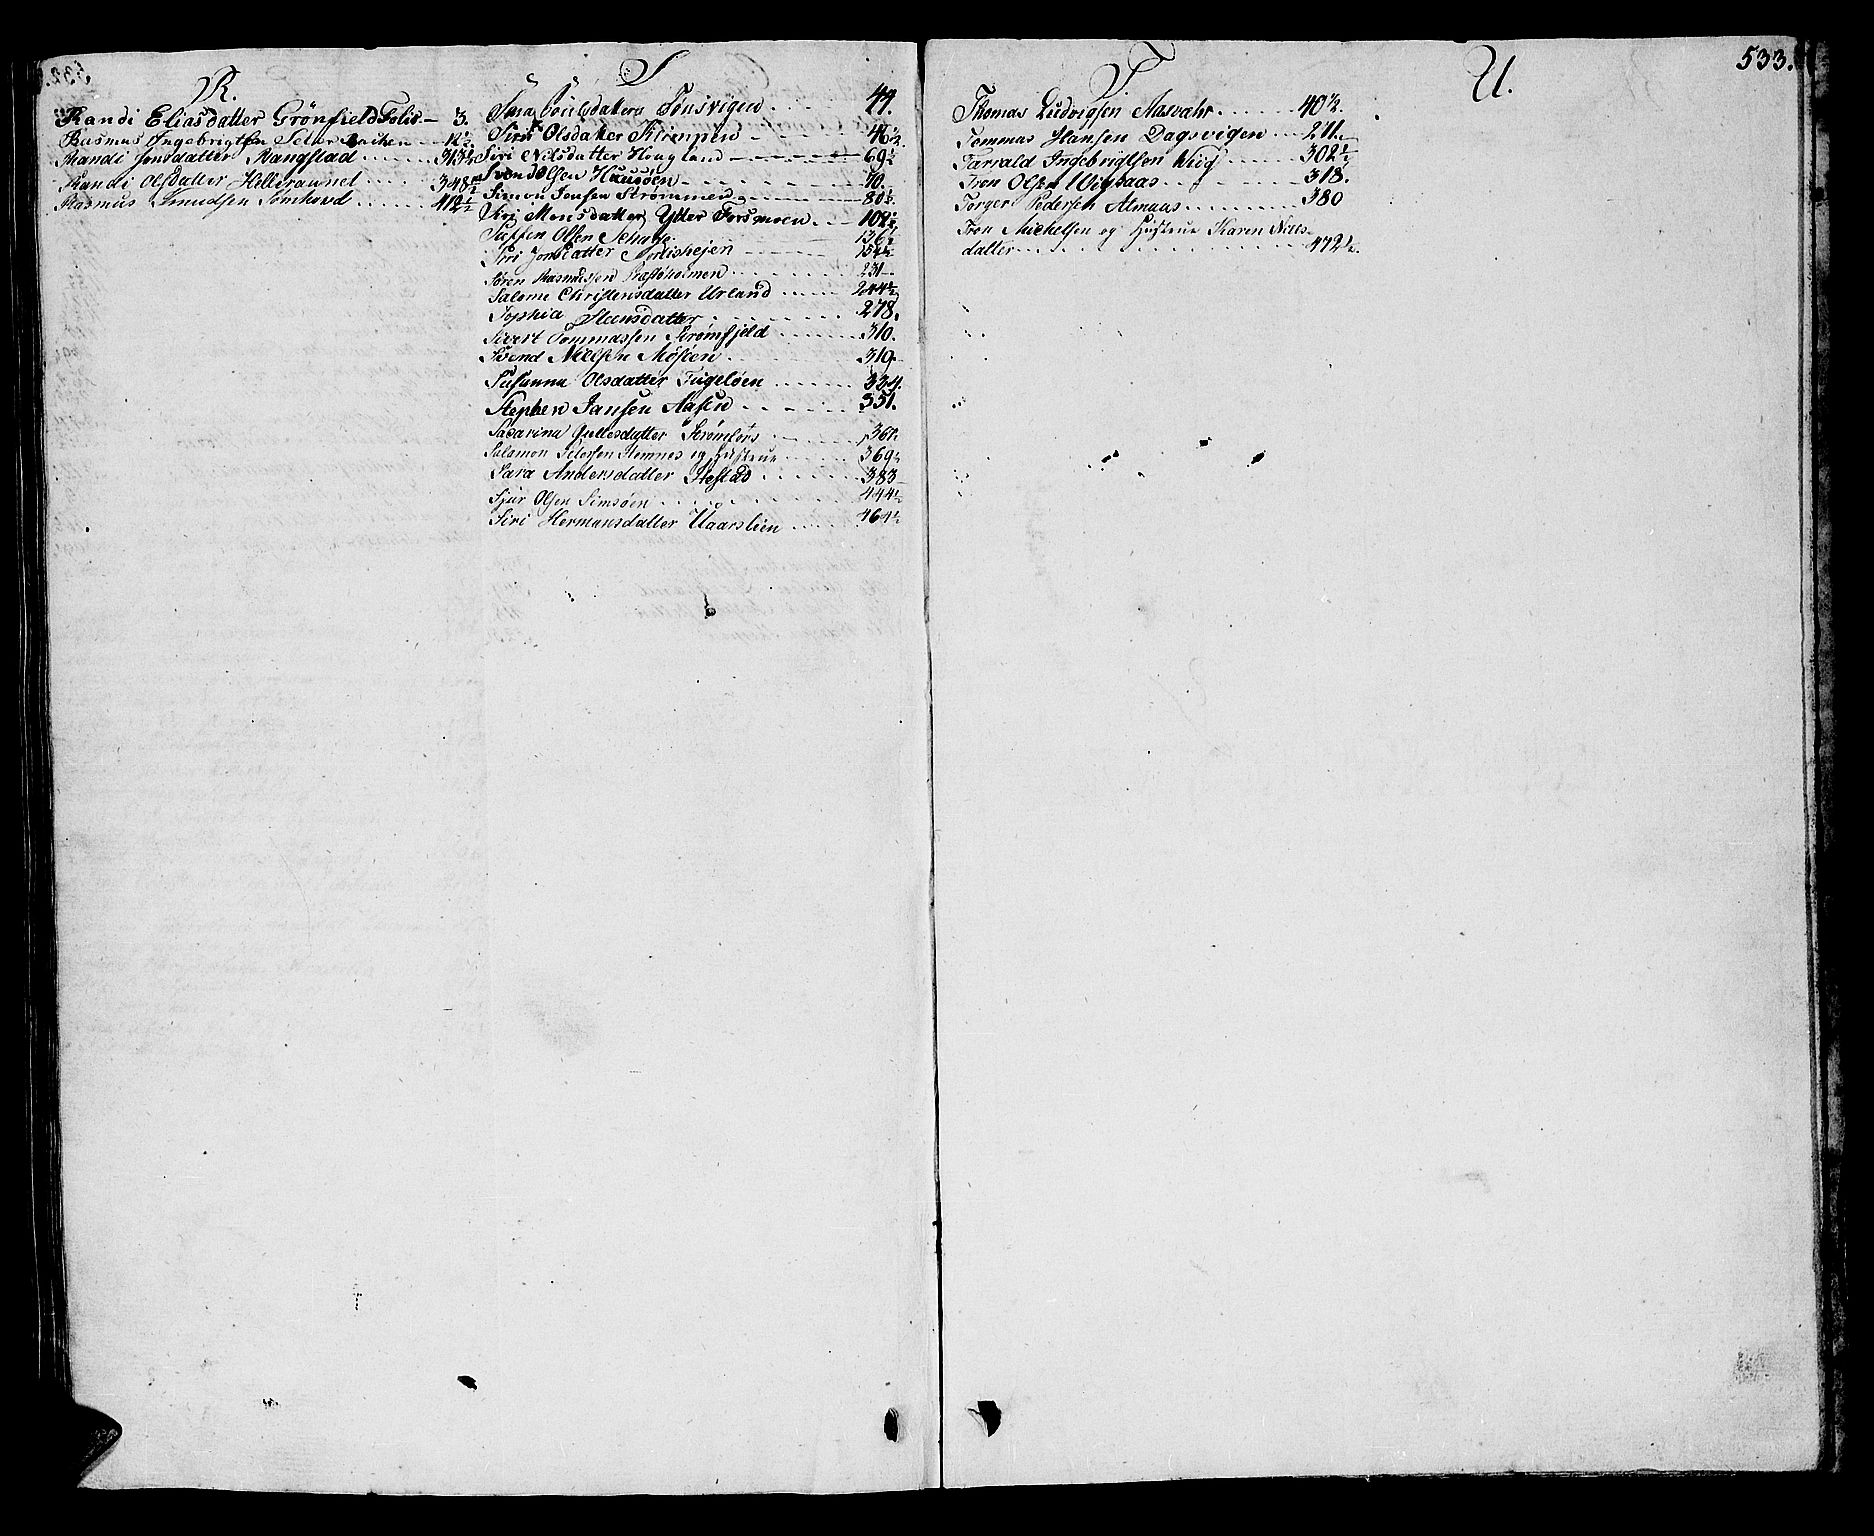 R.
Randi Eliasdatter Grönfield Folio — 3.
Rasmus Ingebrigtsen 12½.
Randi Jonsdatter Rangstad ...... 313½
Randi Olsdatter Hilleraunet ..... 348½
Rasmus Knudsen Somhovd ...... 412½
S
Tønsvigen .... 44.
Siri Olsdatter Klompen — 46½.
Siri Nilsdatter Hougland — 69½
Svend Olsen 70.
Simon Jensen Strømmen — 80½.
Siri Monsdatter Ytter Forsmoen. — 102½
Steffen Olsen 136½
Siri Jonsdatter 154½
Søren Rasmussen 231—
Salome Christensdatter Urland ..... 244½
Sophia Steensdatter ........ 278.
Sivert Tommassen Strømfjeld ..... 310.
Svend Nielsen Møsten ........ 319.
Susanna Olsdatter Fugeløen ...... 334.
Stephen Jansen Aasen ...... 351.
Gullesdatter Strømfors 367.
Salamon Petersen Hemnes og Hustrue ..... 369½
Sara Andersdatter Hestad ....... 383—
Sjur Olsen Simsøen .......... 444½
Siri Hermansdatter Vaarslien .... 464½
T
Thomas Ludvigsen Aasvahr ...... 40½.
Tommas Hansen Dagsvigen .... 271.
Tarvald Ingebrigtsen Wiig ...... 302½
Tron Olsen Wigsaas ......... 318.
Torger Pedersen Almaas ........ 380
Tron Michelsen og Hustrue Karen Niels-
datter .................. 472½.
U.
533.